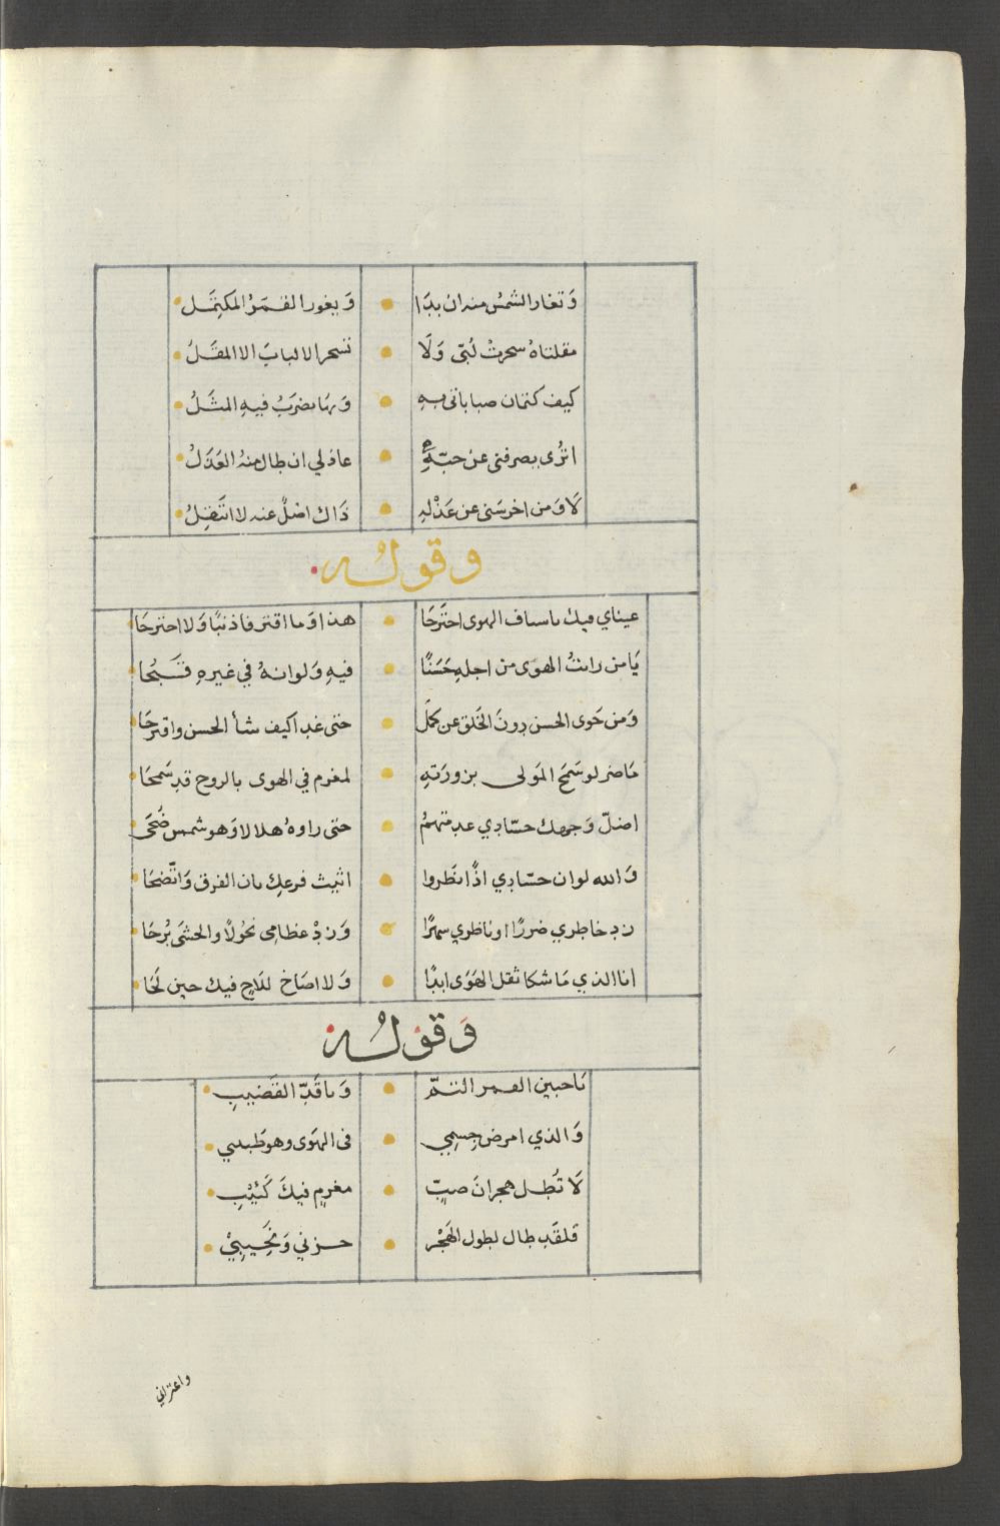 وَتغار الشمسُ منه ان بدَا • وَيغور القمَرُ المكتمَل •
مقلتاهُ سحرتْ لُبّى وَلَا • تسحر الالبابَ الا المقَلُ •
كيف كتمان صباباتى بهِ • وَبهَا يضرَبُ فيهِ المثَلُ •
اترُى يصرفنى عن حبّهِ • عاذلي ان طال منهُ العَذَلُ •
لَا وَمن اخرسَنى عن عَذْلهِ • ذَاك اصْلٌ عنه لا انتَقِلُ •
وقولُه •
عيناي فيك باسياف الهوى اجترَحَا • هذا وَما اقترفا ذنبًا وَلا اجترحَا •
يَا من رايتُ الهوَى من اجلهِ حَسَنًا • فيهِ وَلو انهُ في غيرهِ قَبُحَا •
وَمن حَوى الحسن دونَ الخَلق عن كمَل • حتى غدا كيف شأ الحسن واقترحَا •
مَا ضر لو سَمَحَ المَولى بزورَتهِ • لمغرم في الهوى بالروح قد سَمحَا •
اضلّ وَجهك حسّادي عدمتهمُ • حتى راوهُ هلالا وَهو شمس ضُحَى •
وَالله لو ان حسّادي اذْا نظروا • اثيث فرعك بان الفرق وَاتّضحَا •
زد خاطري ضررًا او ناظري سهرًا • وَزدْ عظامى نحُولًا والحشَى بُرحَا •
انا الذي مَا شكا ثقل الهَوَى ابدًا • وَلا اصَاخ للَاحٍ فيك حين لَحَا •
وَقوْلُه •
يَا جبين القمر التّمّ • وَيا قَدّ القَضيبِ •
وَالذي امرض جِسمِي • فى الهوَى وهو طَبيبي •
لَا تُطِل هجرانَ صبّ • مغرمٍ فيكَ كَئيْبِ •
فلقَد طال لطول الهَجْرِ • حزني وَنَحِيبِيْ •
واعترانى